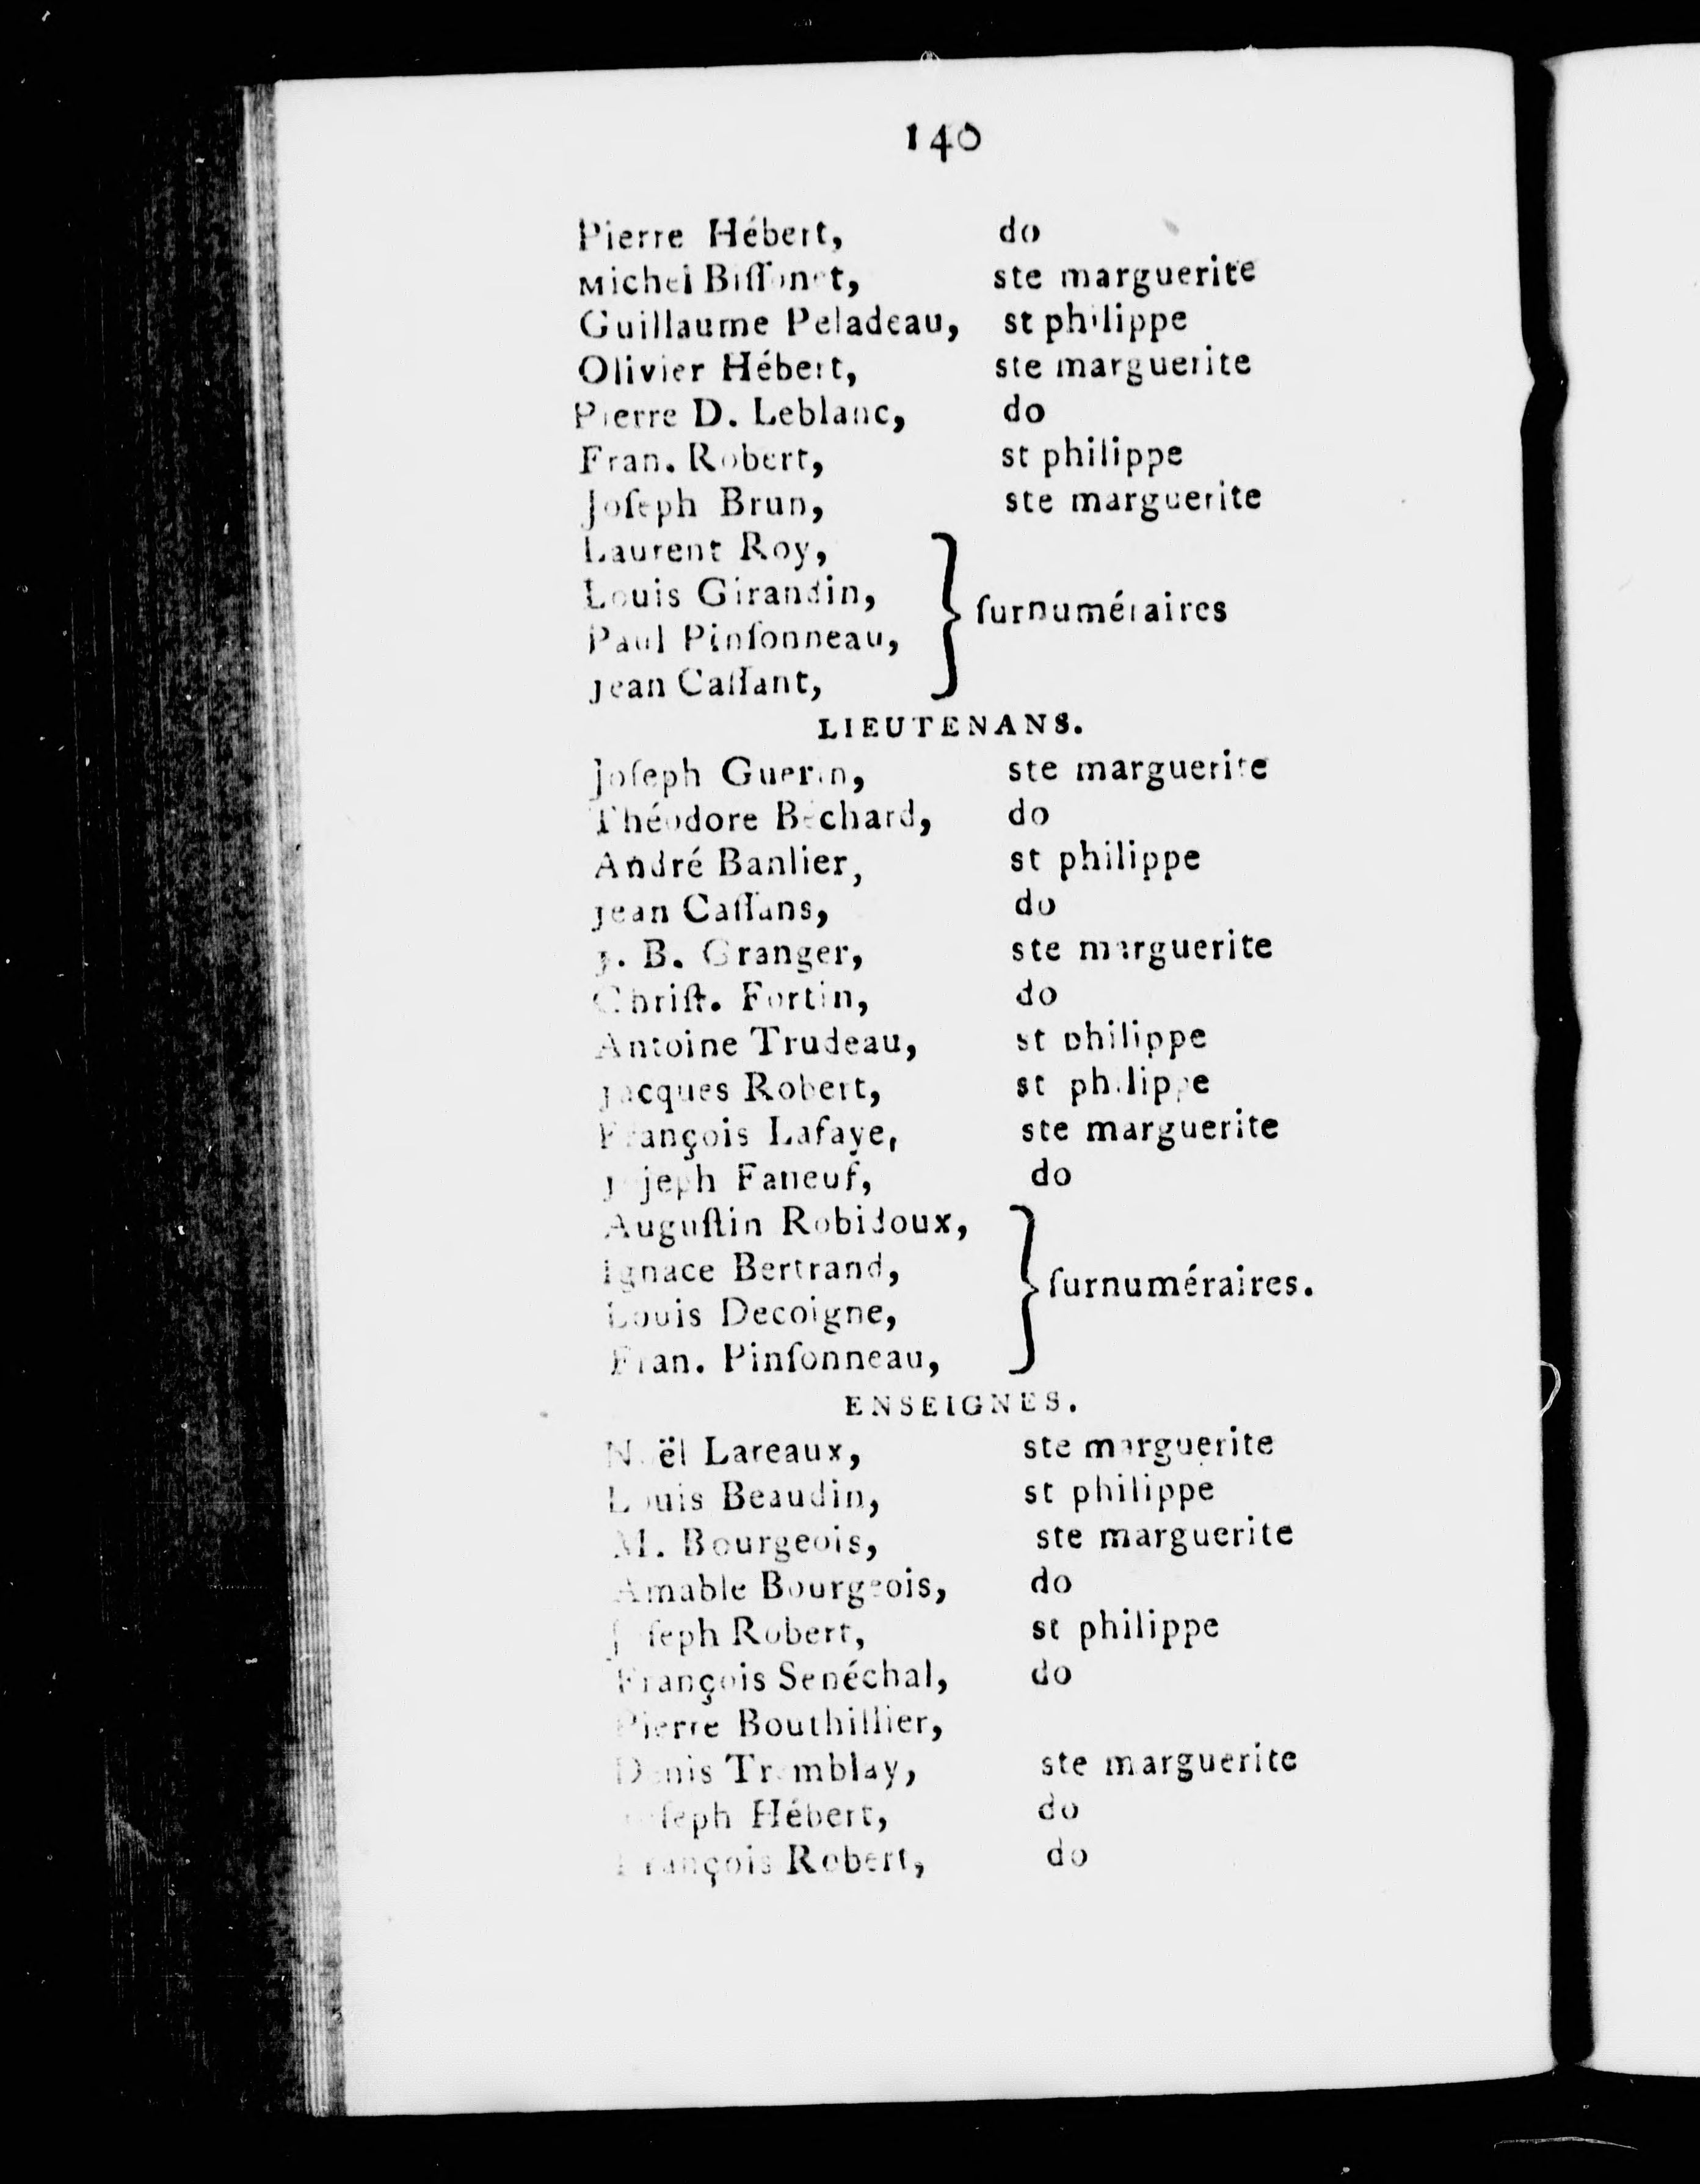 140
Pierre Hébert, do
Michel Biſſonet, ste marguerite
Guillaume Peladeau, st philippe
Olivier Hébert, ste marguerite
Pierre D. Leblanc, do
Fran. Robert, st philippe
Joſeph Brun, ste marguerite
Laurent Roy,
Louis Girandin,
Paul Pinſonneau,
jean Caſſant,
} ſurnuméraires
LIEUTENANS.
Joſeph Guerin, ste marguerite
Théodore Béchard, do
André Banlier, st philippe
jean Caſſans, do
j. B. Granger, ste marguerite
Chriſt. Fortin, do
Antoine Trudeau, st philippe
jacques Robert, st philippe
François Lafaye, ste marguerite
jojeph Faneuf, do
Auguſtin Robidoux,
Ignace Bertrand,
Louis Decoigne,
Fran. Pinſonneau,
} ſurnuméraires.
ENSEIGNES.
Noël Lareaux, ste marguerite
Louis Beaudin, st philippe
M. Bourgeois, ste marguerite
Amable Bourgeois, do
Joſeph Robert, st philippe
François Senéchal, do
Pierre Bouthillier,
Denis Tremblay, ste marguerite
joſeph Hébert, do
François Robert, do